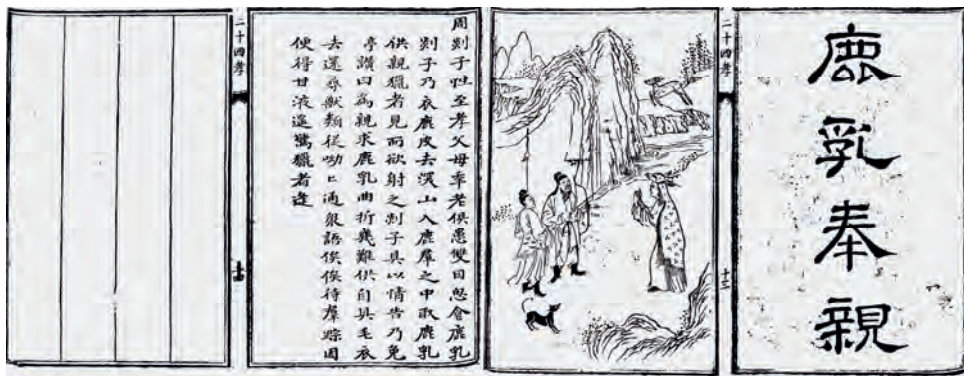 鹿乳奉親
二十四孝
十三
周剡子性至孝父母年老俱患雙目思食鹿乳
剡子乃衣鹿皮去深山入鹿羣之中取鹿乳
供親獵者見而欲射之剡子具以情告乃免
亭讚曰為親求鹿乳曲折幾難供自具毛衣
去還尋獸類從呦ヒ通衆語俟俟待羣蹤因
便得甘液遥驚獵者逢
二十四孝
十四